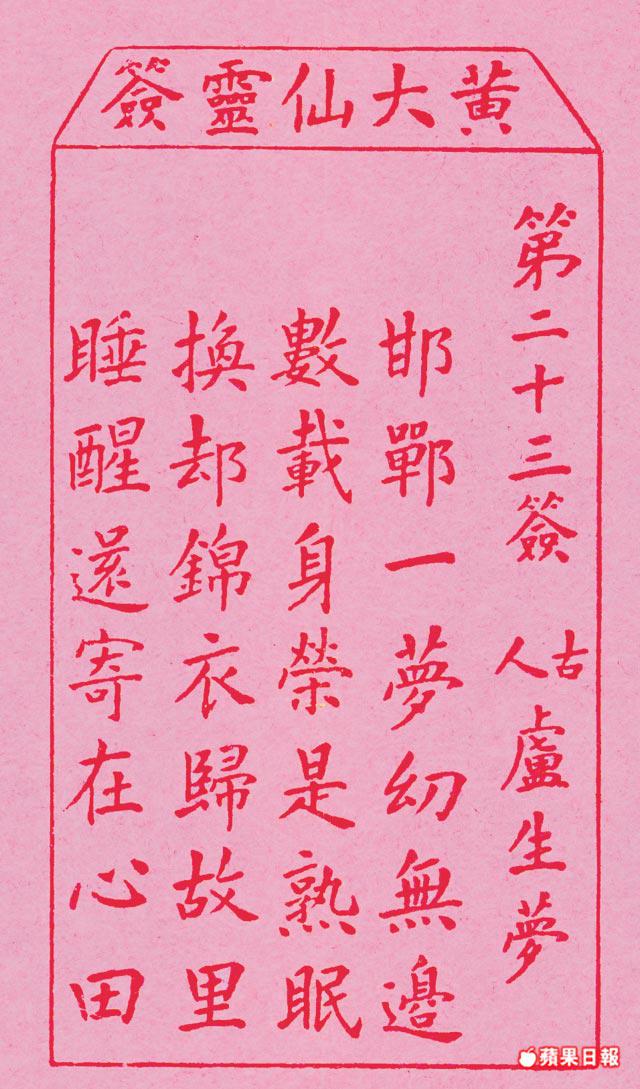 黄大仙靈簽
第二十三簽 古人 盧生夢
邯鄲一夢幻無邊
數載身榮是熟眠
換却錦衣歸故里
睡醒還寄在心田
蘋果日報